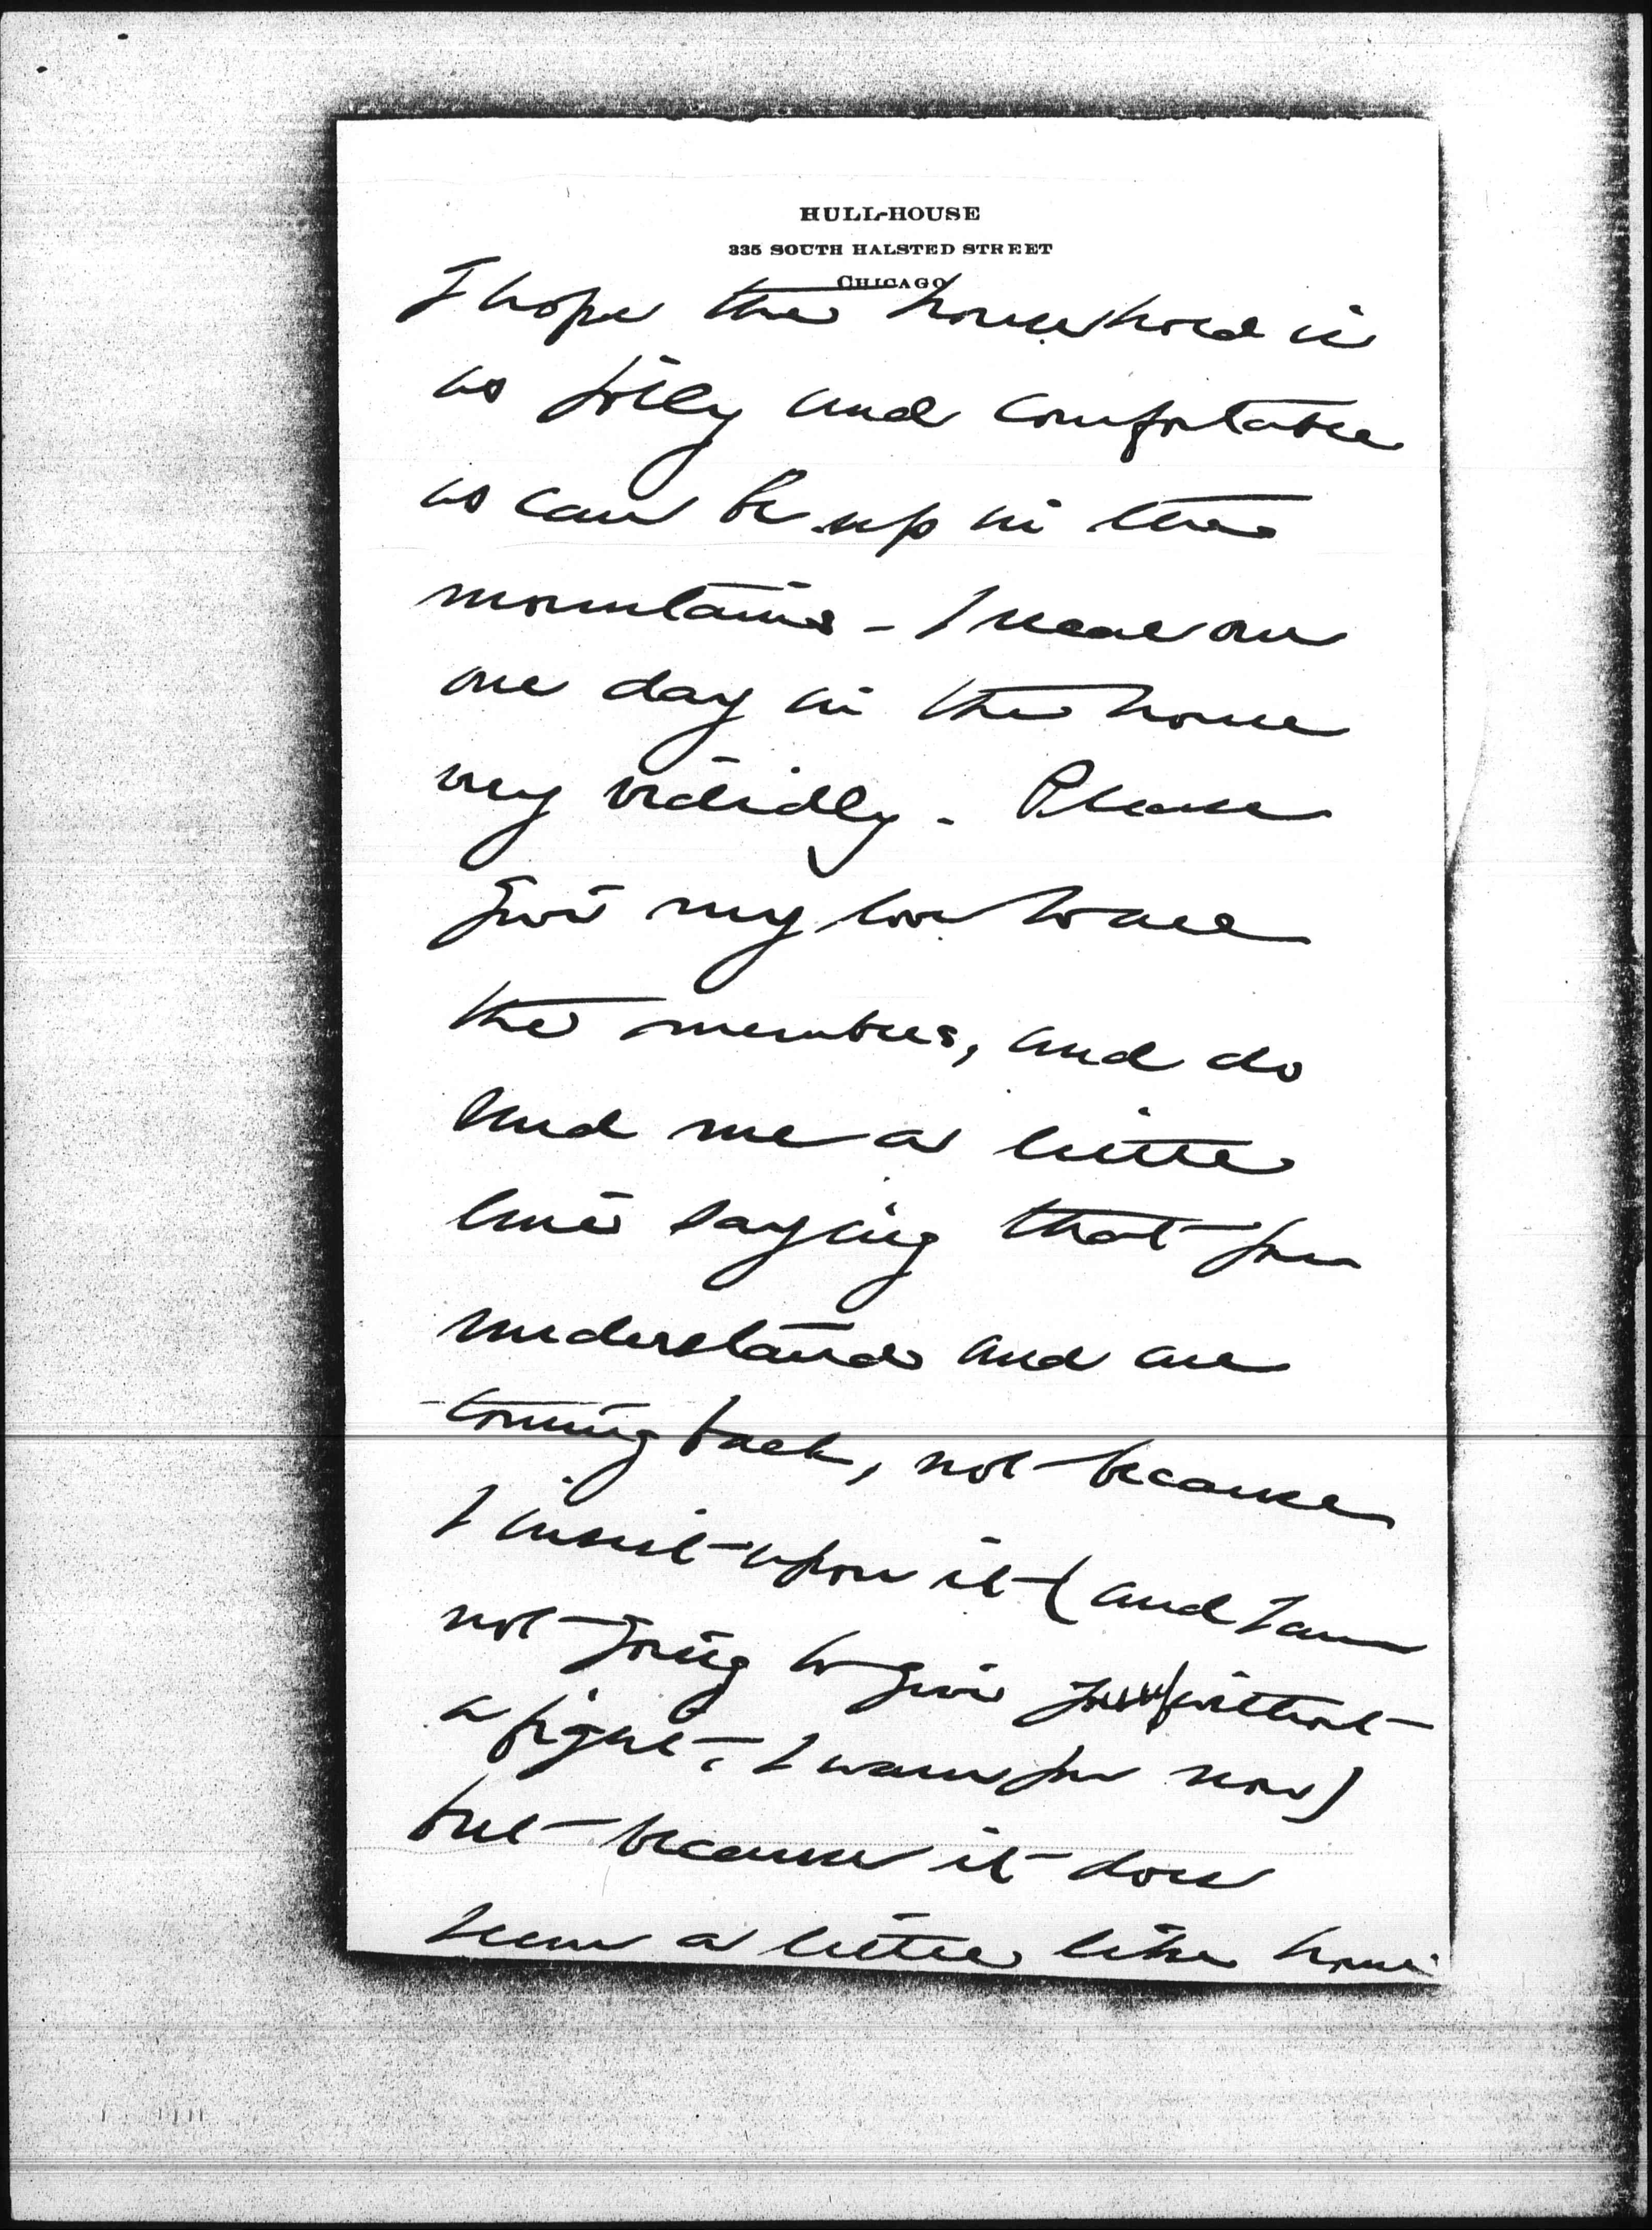 HULL-HOUSE
335 SOUTH HALSTED STREET
CHICAGO
I hope the household is
as jolly and comfortable
as can be up in the
mountains - I recall our
one day in the house
very vividly - Please
give my love to all
the members, and do
send me a little
line saying that you
understand and are
coming back, not because
I insist upon it (and I am
not going to give you up without
a fight, I warn you now)
but because it does
seem a little like home